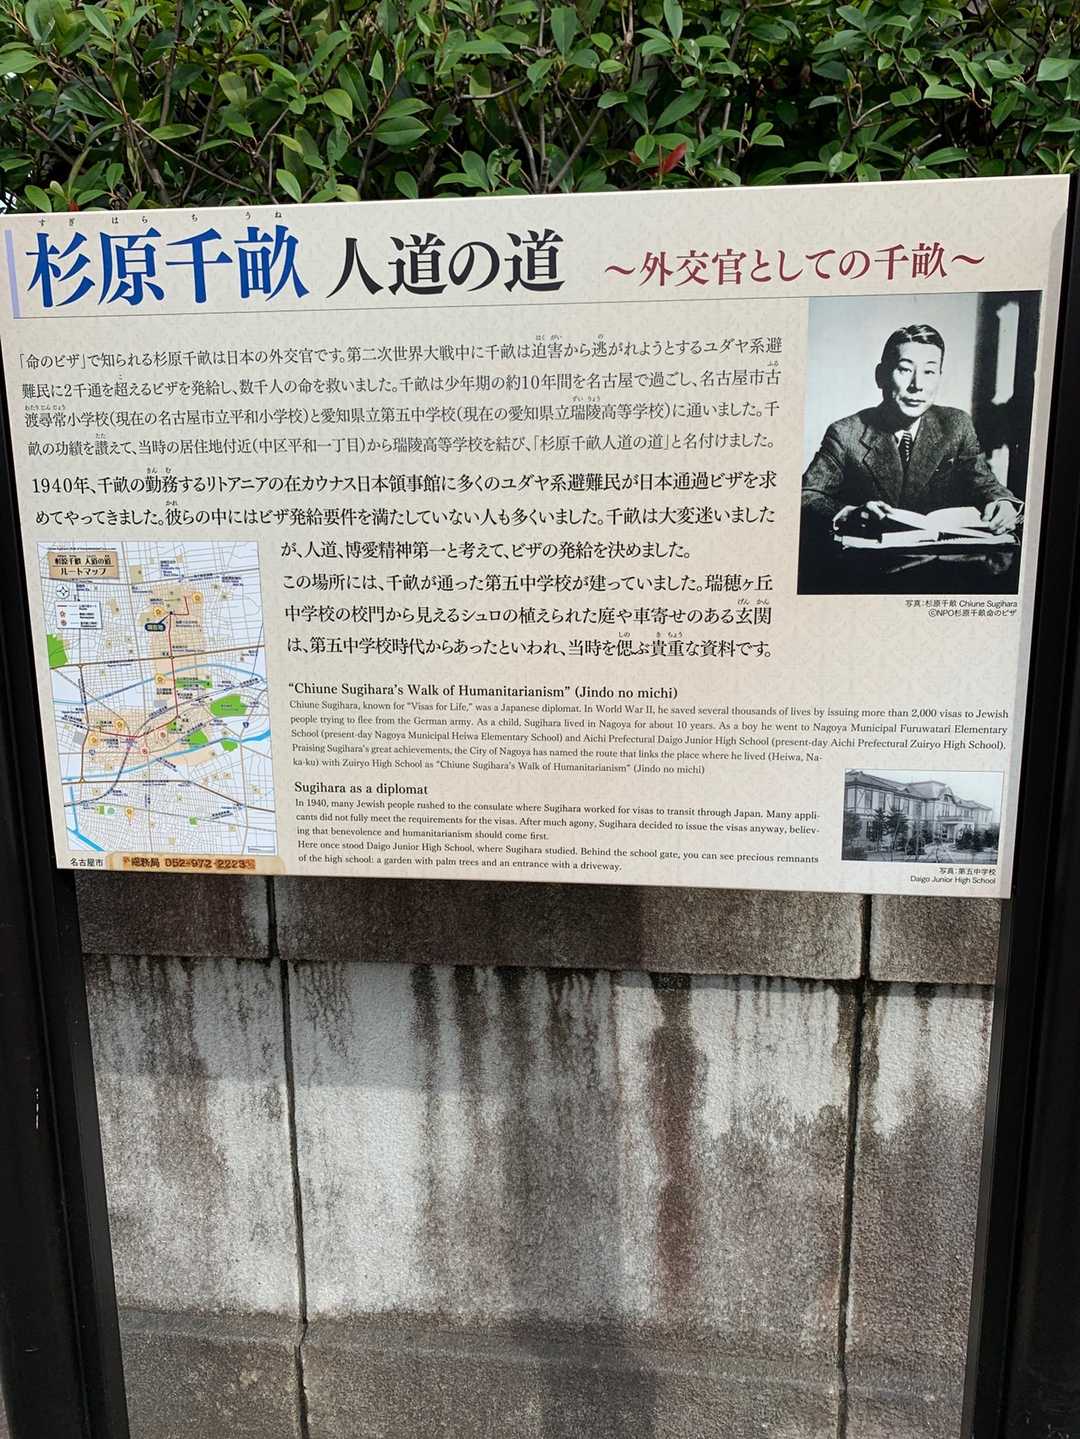 すぎ はら ち うね
杉原千畝 人道の道 ～外交官としての千畝～
「命のビザ」で知られる杉原千畝は日本の外交官です。第二次世界大戦中に千畝は迫害から逃がれようとするユダヤ系避
難民に2千通を超えるビザを発給し、数千人の命を救いました。千畝は少年期の約10年間を名古屋で過ごし、名古屋市古
渡尋常小学校(現在の名古屋市立平和小学校)と愛知県立第五中学校(現在の愛知県立瑞陵高等学校)に通いました。千
畝の功績を讃えて、当時の居住地付近(中区平和一丁目)から瑞陵高等学校を結び、「杉原千畝人道の道」と名付けました。
1940年、千畝の勤務するリトアニアの在カウナス日本領事館に多くのユダヤ系避難民が日本通過ビザを求
めてやってきました。彼らの中にはビザ発給要件を満たしていない人も多くいました。千畝は大変迷いました
が、人道、博愛精神第一と考えて、ビザの発給を決めました。
この場所には、千畝が通った第五中学校が建っていました。瑞穂ヶ丘
中学校の校門から見えるシュロの植えられた庭や車寄せのある玄関
は、第五中学校時代からあったといわれ、当時を偲ぶ貴重な資料です。
写真：杉原千畝 Chiune Sugihara
©NPO杉原千畝命のビザ
杉原千畝 人道の道
ルートマップ
現在地
"Chiune Sugihara's Walk of Humanitarianism" (Jindo no michi)
Chiune Sugihara, known for "Visas for Life," was a Japanese diplomat. In World War II, he saved several thousands of lives by issuing more than 2,000 visas to Jewish
people trying to flee from the German army. As a child, Sugihara lived in Nagoya for about 10 years. As a boy he went to Nagoya Municipal Furuwatari Elementary
School (present-day Nagoya Municipal Heiwa Elementary School) and Aichi Prefectural Daigo Junior High School (present-day Aichi Prefectural Zuiryo High School).
Praising Sugihara's great achievements, the City of Nagoya has named the route that links the place where he lived (Heiwa, Na-
ka-ku) with Zuiryo High School as "Chiune Sugihara's Walk of Humanitarianism" (Jindo no michi)
Sugihara as a diplomat
In 1940, many Jewish people rushed to the consulate where Sugihara worked for visas to transit through Japan. Many appli-
cants did not fully meet the requirements for the visas. After much agony, Sugihara decided to issue the visas anyway, believ-
ing that benevolence and humanitarianism should come first.
Here once stood Daigo Junior High School, where Sugihara studied. Behind the school gate, you can see precious remnants
of the high school: a garden with palm trees and an entrance with a driveway.
写真：第五中学校
Daigo Junior High School
名古屋市 総務局 052-972-2223